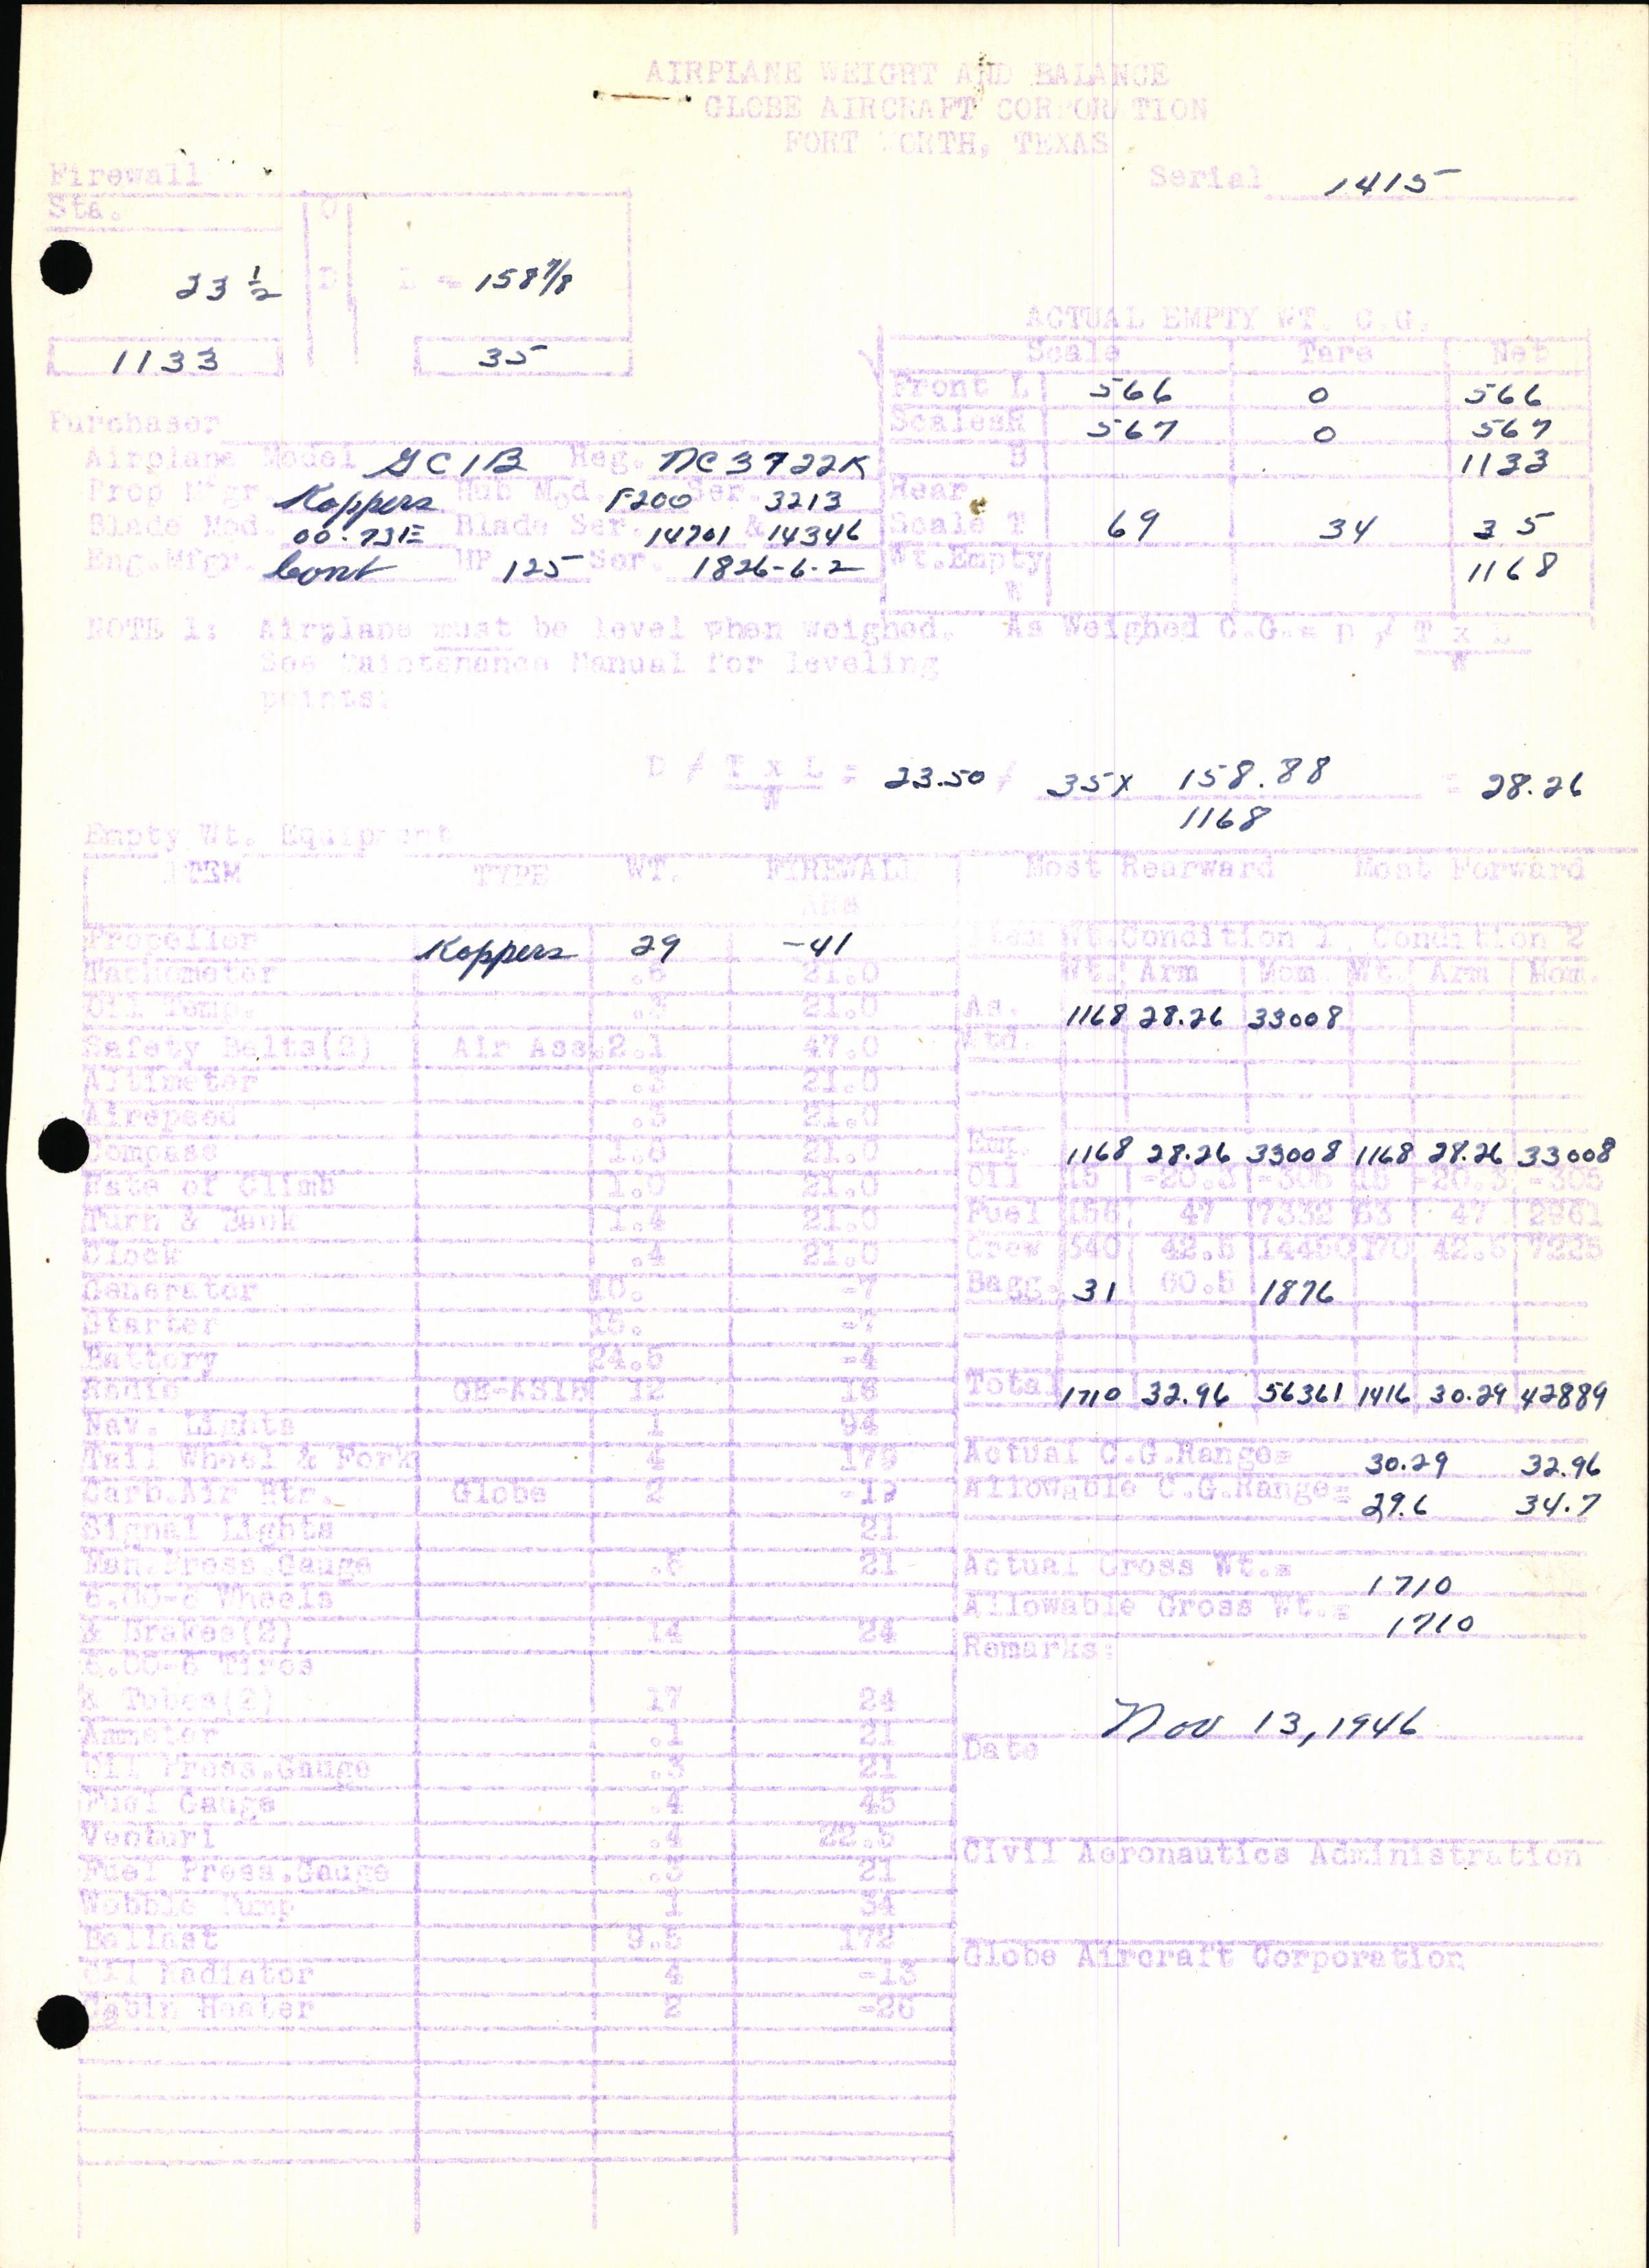 AIRPLANE WEIGHT AND BALANCE
GLOBE AIRCRAFT CORPORATION
FORT WORTH, TEXAS
Serial 1415
Firewall
Sta.
O
23 1/2 D L = 158 7/8
1133 35
ACTUAL EMPTY WT. C.G.
Scale Tare Net
Front L 566 0 566
Scales R 567 0 567
1133
Rear
Scale T 69 34 35
Wt. Empty 1168
W
Purchaser
Airplane Model GC1B Reg. NC3722K
Prop Mfgr. Koppers Hub Mod. F200 Ser. 3213
Blade Mod. 00-73IE Blade Ser. 14701 & 14346
Eng.Mfgr. Cont HP 125 Ser. 1826-6-2
NOTE 1: Airplane must be level when weighed. As Weighed C.G.= D / T x L
W
See Maintenance Manual for leveling
points.
D / T x L = 23.50 / 35 x 158.88 = 28.26
W 1168
Empty Wt. Equipment
ITEM TYPE WT. FIREWALL
ARM
Propeller Koppers 29 -41
Tachometer 21.0
Oil Temp. 21.0
Safety Belts(2) Air Ass. 2.1 47.0
Altimeter 21.0
Airspeed 21.0
Compass 21.0
Rate of Climb 1.0 21.0
Turn & Bank 1.4 21.0
Clock .4 21.0
Generator 10. -7
Starter -7
Battery 24.5 -4
Radio 12
Nav. Lights 1 94
Tail Wheel & Fork 4 179
Carb.Air Htr. Globe 2 -19
Signal Lights 21
Man.Press.Gauge 21
6.00-6 Wheels
& Brakes(2) 14 24
6.00-6 Tires
& Tubes(2) 17 24
Ammeter .1 21
Oil Press.Gauge .3 21
Fuel Gauge .4 45
Venturi .4 22.5
Fuel Press.Gauge .3 21
Wobble Pump 1 34
Ballast 9.5 172
Oil Radiator 4 -13
Cabin Heater 2 -26
Most Rearward Most Forward
Item Wt Condition 1 Condition 2
Wt. Arm Mom. Wt. Arm Mom.
As. 1168 28.26 33008
Wtd.
Emt. 1168 28.26 33008 1168 28.26 33008
Oil 15 -20.3 -305 15 -20.3 -305
Fuel 156 47 7332 63 47 2961
Crew 340 42.5 14450 170 42.5 7225
Bagg. 31 60.5 1876
Total 1710 32.96 56361 1416 30.29 42889
Actual C.G.Range= 30.29 32.96
Allowable C.G.Range= 29.6 34.7
Actual Gross Wt.= 1710
Allowable Gross Wt.= 1710
Remarks:
Nov 13, 1946
Date
Civil Aeronautics Administration
Globe Aircraft Corporation